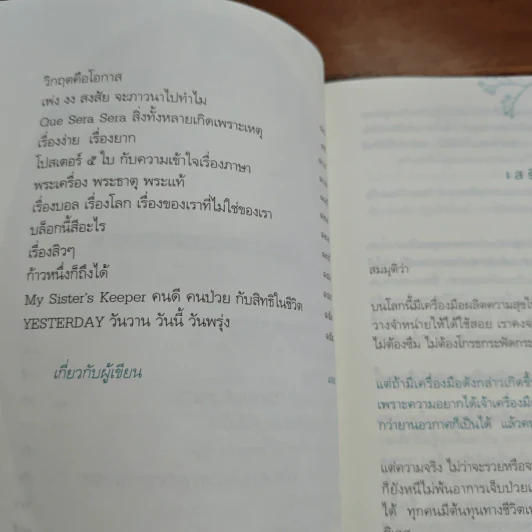 วิกฤตคือโอกาส
เพ่ง งง สงสัย จะภาวนาไปทำไม
Que Sera Sera สิ่งทั้งหลายเกิดเพราะเหตุ
เรื่องง่าย เรื่องยาก
โปสเตอร์ ๕ ใบ กับความเข้าใจเรื่องภาษา
พระเครื่อง พระธาตุ พระแท้
เรื่องบอล เรื่องโลก เรื่องของเราที่ไม่ใช่ของเรา
บล็อกนี้สีอะไร
เรื่องสิวๆ
ก้าวหนึ่งก็ถึงได้
My Sister's Keeper คนดี คนป่วย กับสิทธิในชีวิต
YESTERDAY วันวาน วันนี้ วันพรุ่ง
เกี่ยวกับผู้เขียน
สมมุติว่า
บนโลกนี้มีเครื่องมือผลิตความสุข
วางจำหน่ายให้ได้ใช้สอย เราคง
ไม่ต้องซึม ไม่ต้องโกรธกระฟัด
แต่ถ้ามีเครื่องมือดังกล่าวเกิด
เพราะความอยากได้เจ้าเครื่องมือ
กว่ายานอวกาศก็เป็นได้ แล้ว
แต่ความจริง ไม่ว่าจะรวยหรือ
ก็ยังหนีไม่พ้นอาการเจ็บป่วย
ได้ ทุกคนมีต้นทุนทางชีวิต